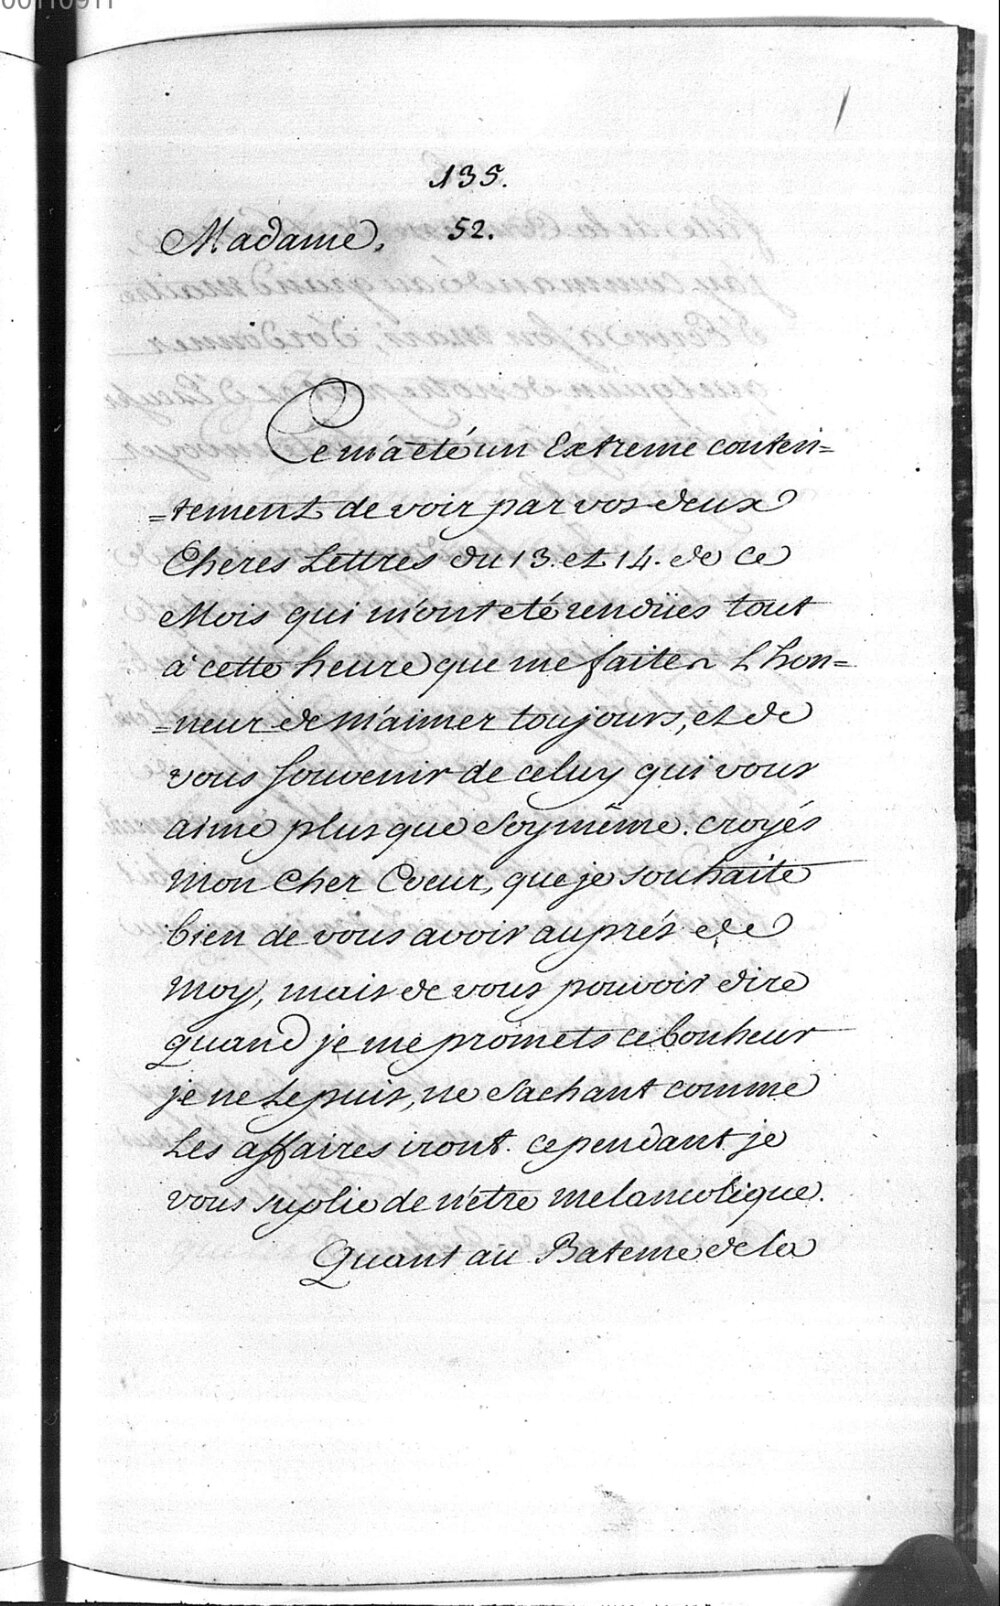 00110911
135.
Madame, 52.
Ce m'a eté un Extreme conten=
=tement de voir par vos deux
Cheres Lettres du 13. et 14. de ce
Mois qui m'ont eté rendües tout
à cette heure que me faites L'hon=
=neur de m'aimer toujours, et de
vous souvenir de celuy qui vous
aime plus que soymême. croyés
mon Cher Coeur, que je souhaite
bien de vous avoir auprés de
moy, mais de vous pouvoir dire
quand je me promets ce bonheur
je ne Le puis, ne sachant comme
Les affaires iront. cependant je
vous suplie de n'etre melancolique.
Quant au Bateme de la